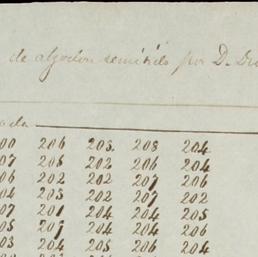 de algodon remitido por D.
ada
00 206 203. 208 204
07 205 202 206 204
06 202 202 207 206
04 203 202 207 202
07 201 204 204 205
05 207 204 204 206
03 204 205 206 204